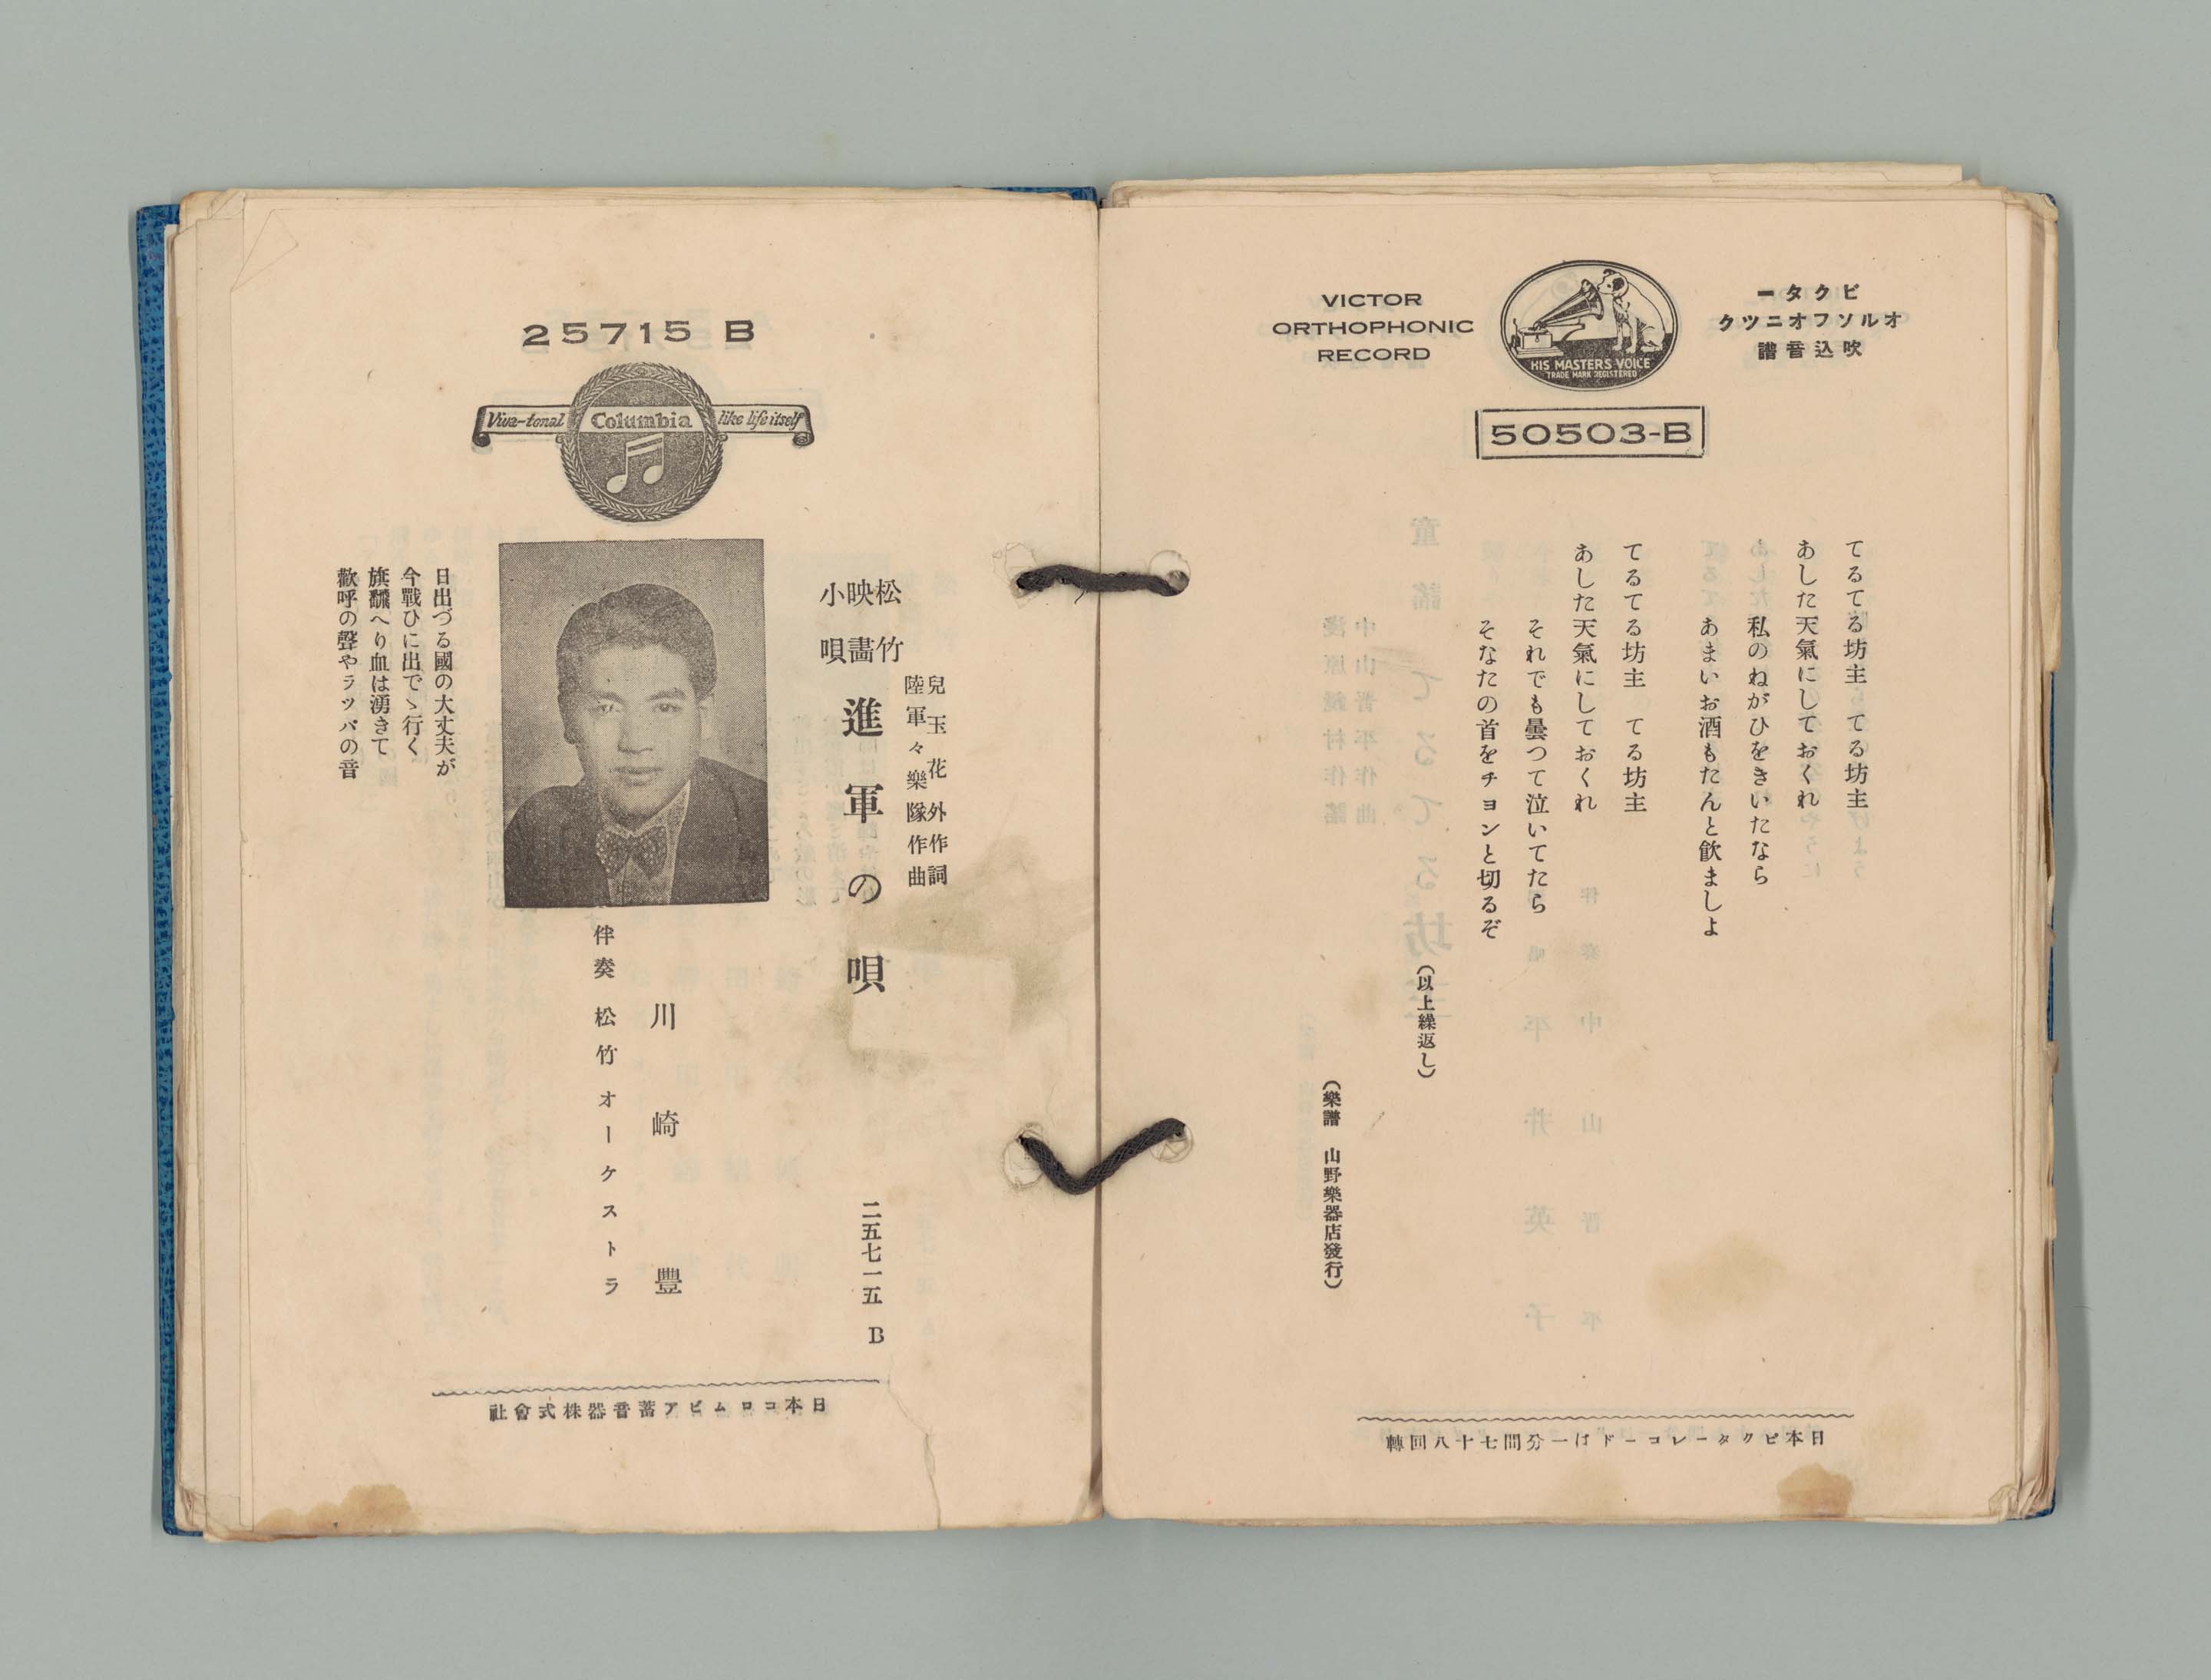 VICTOR
ORTHOPHONIC
RECORD
HIS MASTERS VOICE
TRADE MARK REGISTERED
ビクター
オルソフオニツク
吹込音譜
50503-B
てるてる坊主　てる坊主
あした天氣にしておくれ
私のねがひをきいたなら
あまいお酒もたんと飲ましよ
てるてる坊主　てる坊主
あした天氣にしておくれ
それでも曇つて泣いてたら
そなたの首をチヨンと切るぞ
（以上繰返し）
（樂譜　山野樂器店發行）
日本ビクターレコードは一分間七十八回轉
25715 B
Viva-tonal Columbia like life itself
兒玉花外作詞
陸軍々樂隊作曲
松竹
映畵
小唄
進軍の唄
二五七一五　B
川崎豐
伴奏　松竹オーケストラ
日出づる國の大丈夫が
今戰ひに出でゝ行く
旗飜へり血は湧きて
歡呼の聲やラツパの音
日本コロムビア蓄音器株式會社